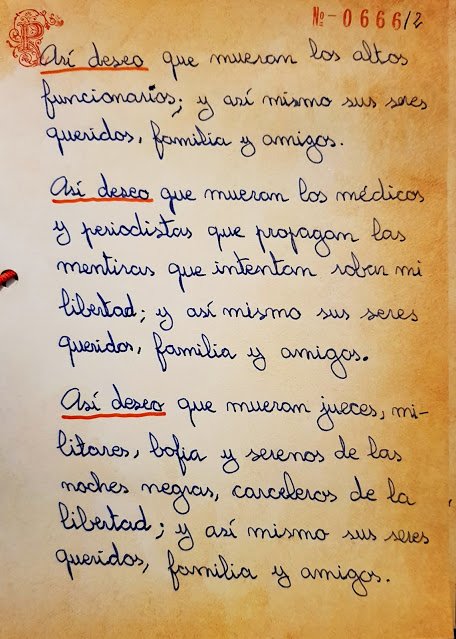 P
Nº-0666/2
Así deseo que mueran los altos
funcionarios; y así mismo sus seres
queridos, familia y amigos.
Así deseo que mueran los médicos
y periodistas que propagan las
mentiras que intentan robar mi
libertad; y así mismo sus seres
queridos, familia y amigos.
Así deseo que mueran jueces, mi-
litares, bofia y serenos de las
noches negras, carceleros de la
libertad; y así mismo sus seres
queridos, familia y amigos.